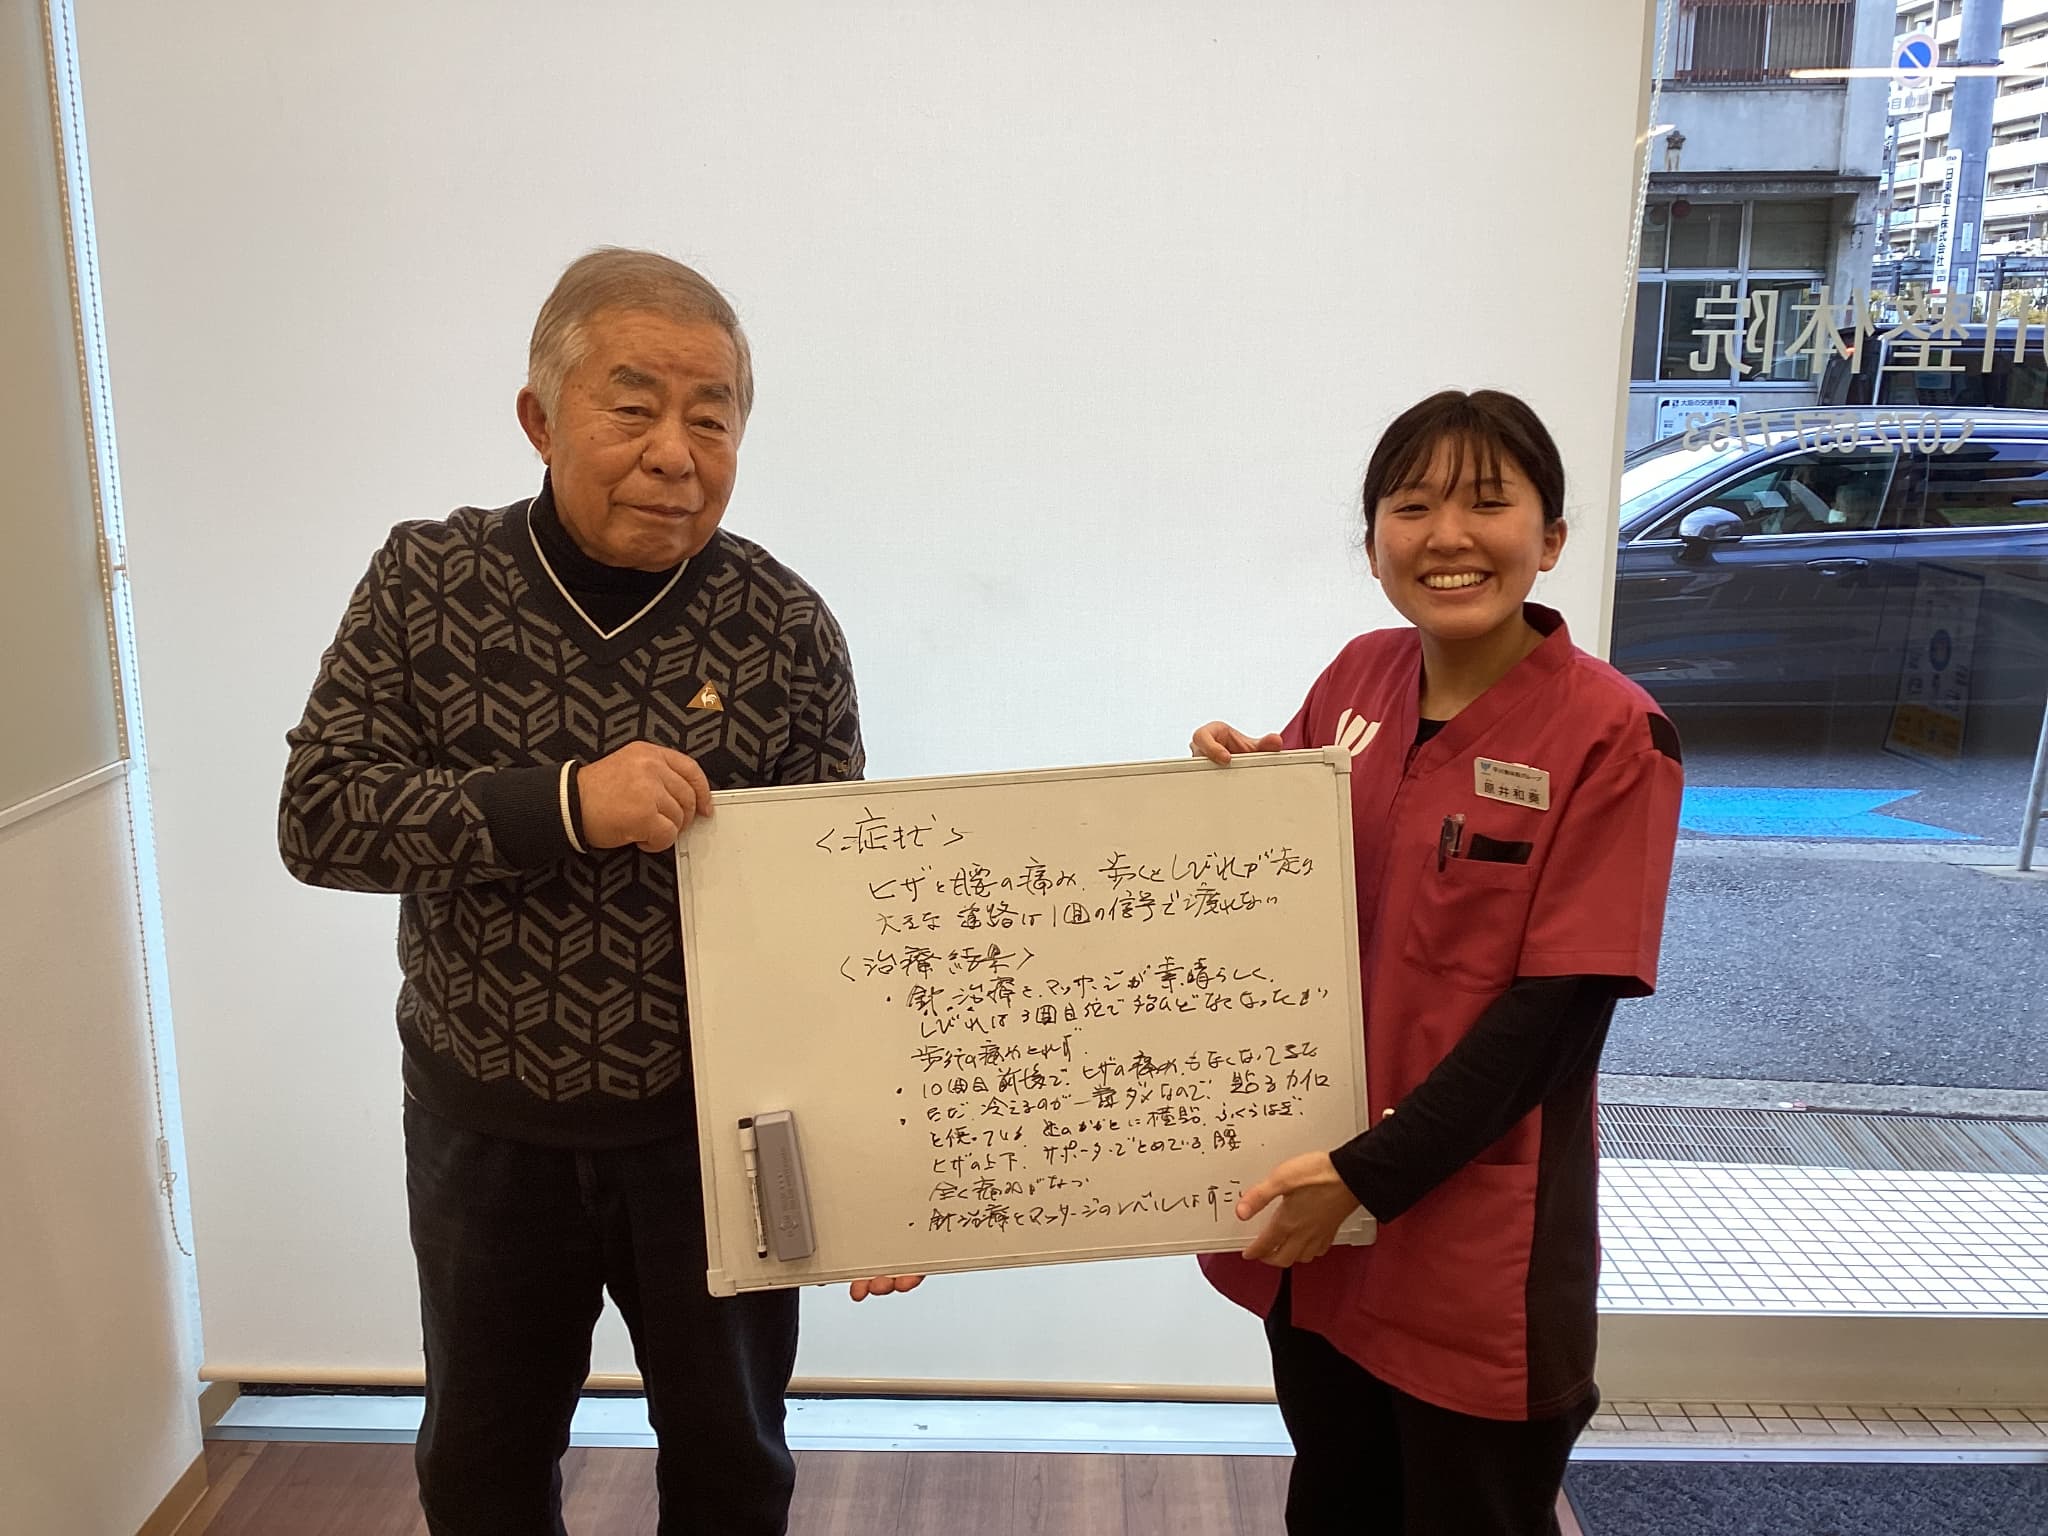 <症状>
ヒザと腰の痛み、歩くとしびれが走り
大きな道路は1回の信号で渡れない
<治療結果>
・針治療とマッサージが素晴らしく、
しびれは3回目位で殆んどなくなったが
歩行の痛みとれず、
・10回目前後で、ヒザの痛みもなくなってきた
・ただ、冷えるのが一番ダメなので、貼るカイロ
を使っている、足のかかとに横貼、ふくらはぎ、
ヒザの上下、サポーターでとめている、腰
全く痛みがない
・針治療とマッサージのレベルはすご
平川整体グループ
原井和奏
川整体院
072-657-7753
大阪の交通事故
日東電工株式会社